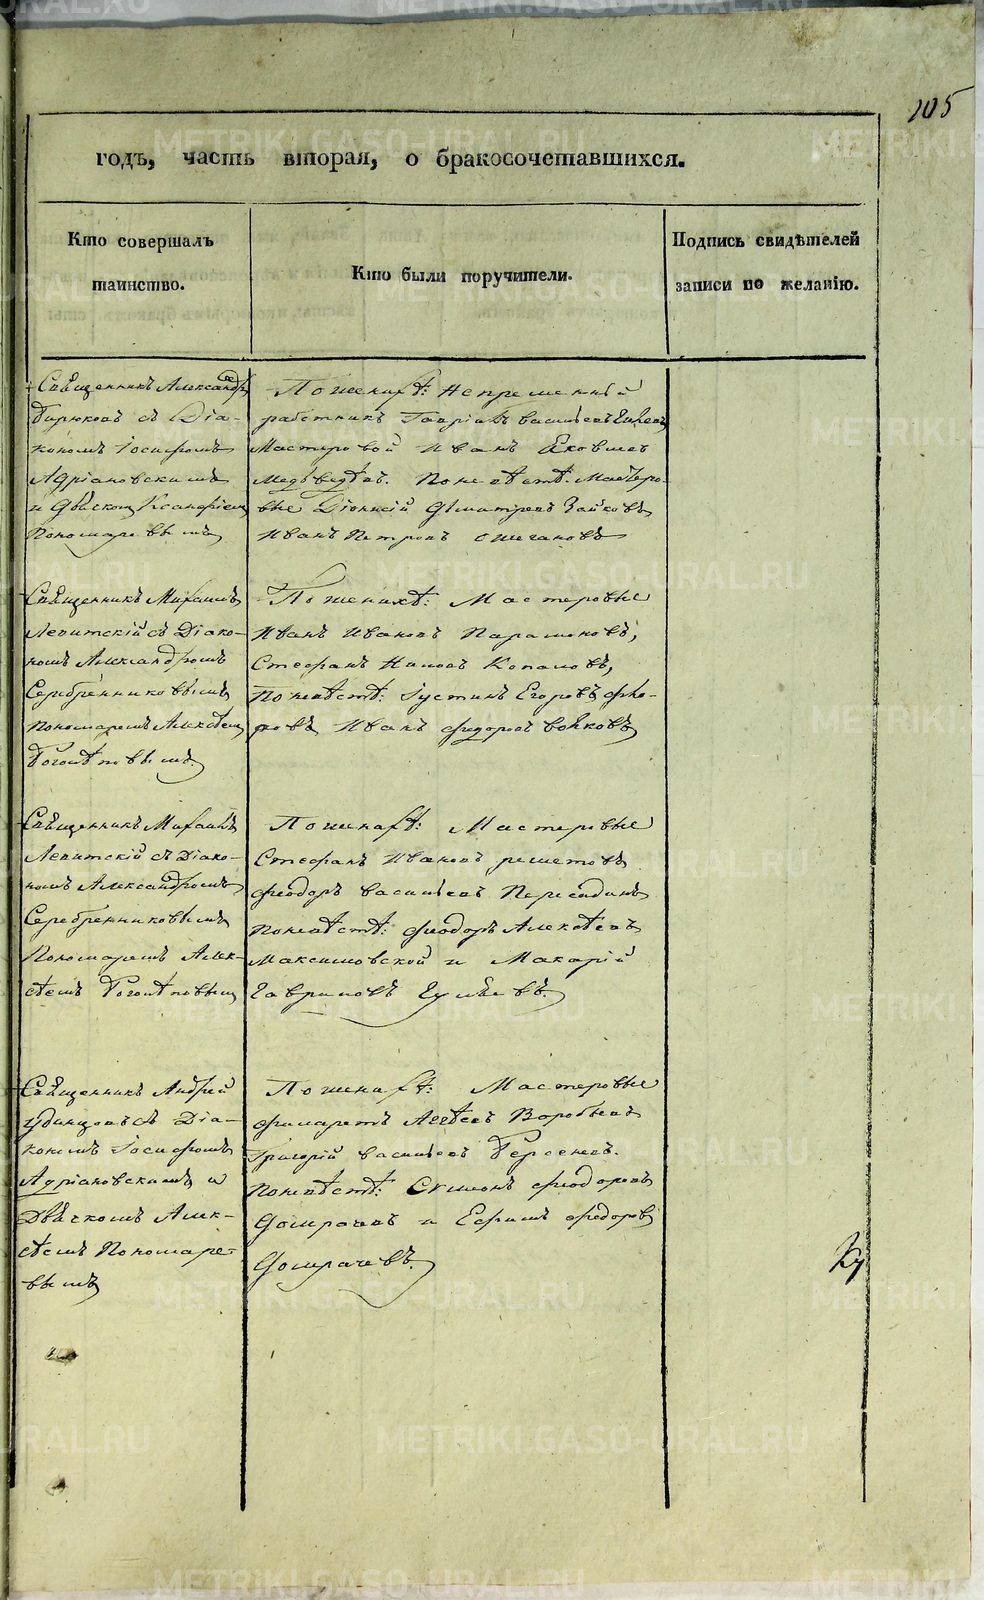 105
годъ, часть вторая, о бракосочетавшихся.
Кто совершалъ
таинство.
Кто были поручители.
Подпись свидѣтелей
записи по желанію.
Священникъ Александръ
Бирюковъ съ Діа-
кономъ Іосифомъ
Адріановскимъ
и
Пономаревымъ
По женихѣ: Непременный
работникъ Гавріилъ Васильевъ
Мастеровой Иванъ Яковлевъ
Медвѣдевъ. По невѣстѣ: Мастеро-
вые Діонисій Дмитріевъ Зайковъ
Иванъ Петровъ
Священникъ Михаилъ
Левитскій съ Діако-
номъ Александромъ
Серебренниковымъ
Пономаремъ Алексѣем
Боголѣповымъ
По женихѣ: Мастеровые
Иванъ Ивановъ Парамоновъ,
Стефанъ Копаловъ,
По невѣстѣ: Іустинъ Егоровъ Фло-
ровъ Иванъ Федоровъ Волковъ
Священникъ Михаилъ
Левитскій съ Діако-
номъ Александромъ
Серебренниковымъ
Пономаремъ Алек-
сѣемъ Боголѣповым
По женихѣ: Мастеровые
Стефанъ Ивановъ Решетовъ
Феодоръ Васильевъ
По невѣстѣ: Феодоръ Алексѣевъ
Максимовской и Макарій
Гавриловъ Гуляевъ.
Священникъ Андрей
Удинцовъ съ Діа-
кономъ Іосифомъ
Адріановскимъ и
Дьячкомъ Алек-
сѣемъ Пономаре-
вымъ
По женихѣ: Мастеровые
Филаретъ Воробьевъ
Григорій Васильевъ Берсеневъ.
По невѣстѣ: Симеонъ Феодоровъ
Домрачевъ и Ефимъ Федоровъ
Домрачевъ.